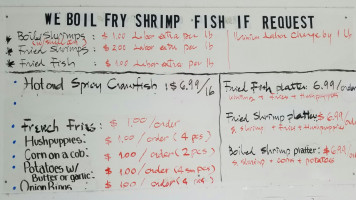 WE BOIL FRY SHRIMP FISH IF REQUEST
Boiled Shrimps : $ 1.00 Labor extra per lb
Fried Shrimps : $ 2.00 Labor extra per lb
Fried Fish : $ 1.00 Labor extra per lb
Labor Charge by 1 lb
Hot and Spicy Crawfish : $6.99/lb
French Fries : $ 1.00/order
Hushpuppies : $ 1.00/order (4 pcs)
Corn on a cob : $ 1.00/order (2 pcs)
Potatoes w/ : $ 1.00/order
Butter or garlic :
Onion Rings $ 1.00/order
Fried Fish platter: 6.99/order
shrimp + fries + hushpuppies
Fried Shrimp platter $ 6.99/order
shrimp + fries + hushpuppies
Boiled Shrimp platter: $6.99
shrimp + corn + potatoes